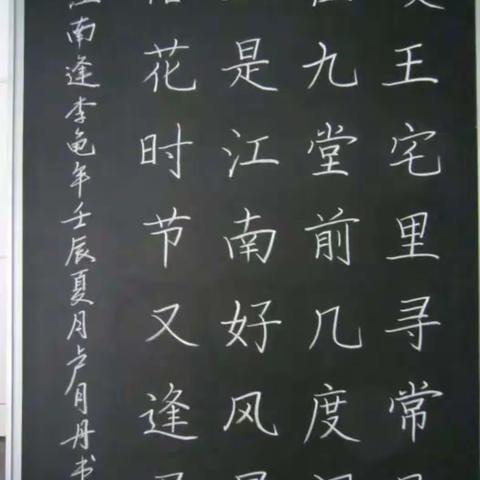 王宅里寻常
九堂前几度
是江南好风
花时节又逢
江南逢李龟年壬辰夏月卢月丹书